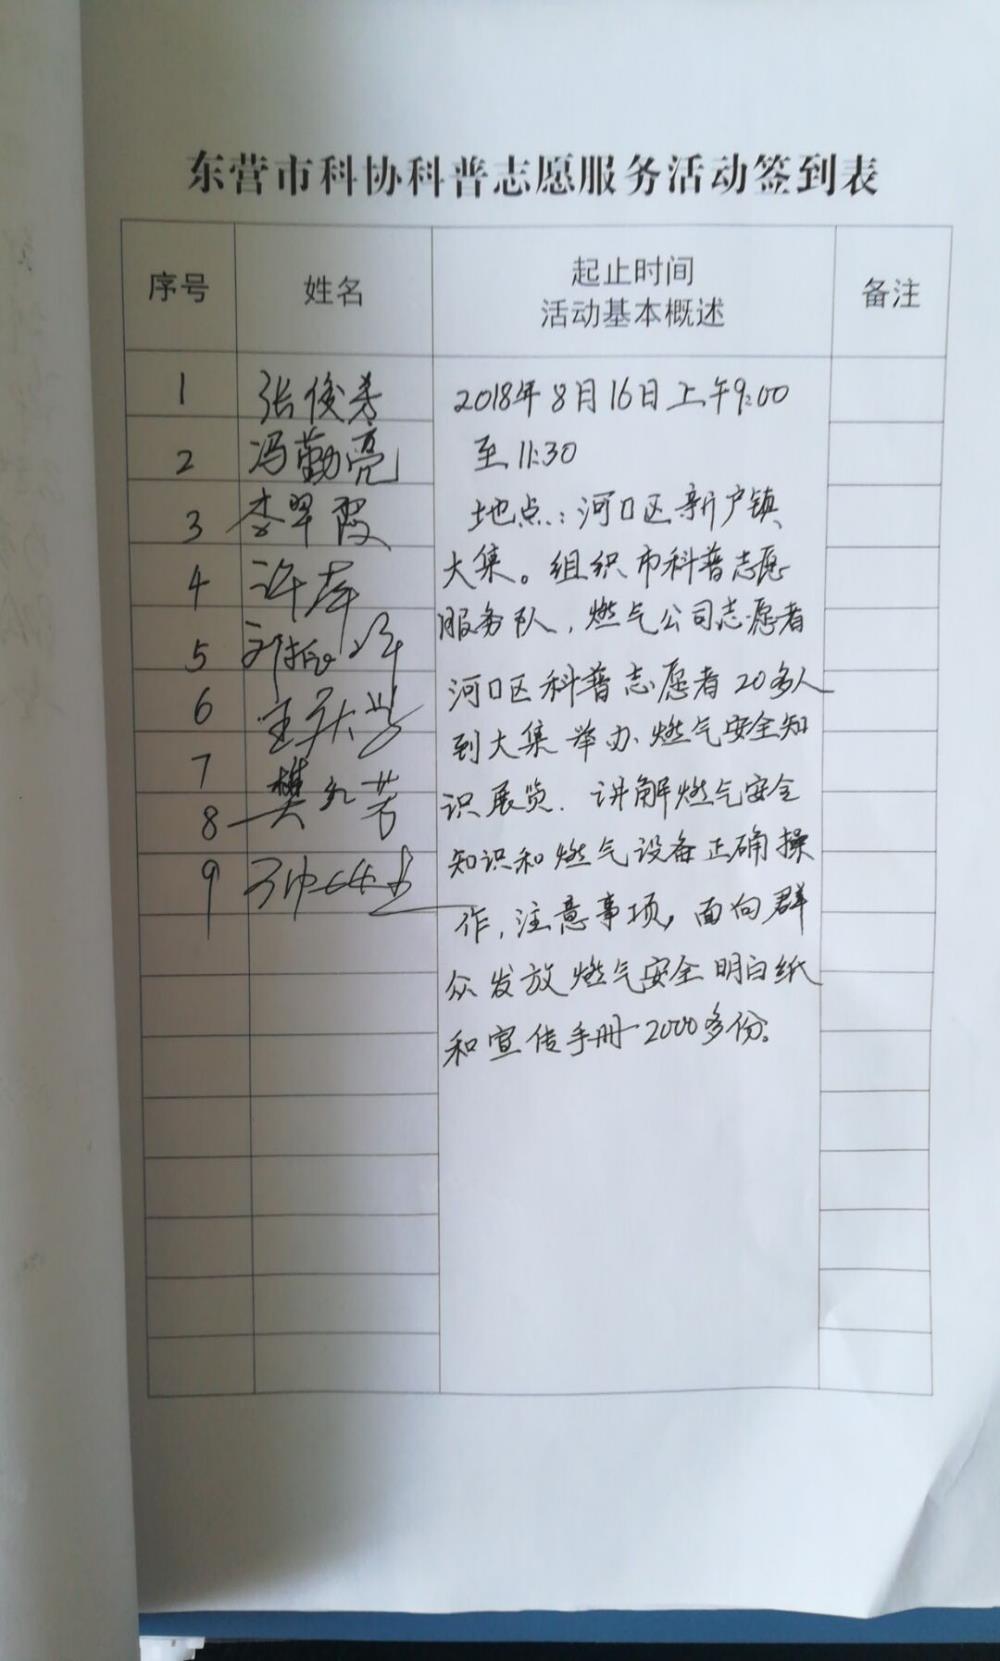 东营市科协科普志愿服务活动签到表
序号 姓名 起止时间 备注
活动基本概述
1 张俊芳 2018年8月16日上午9:00
2 冯勤亮 至11:30
3 李翠霞 地点:河口区新户镇
4 许萍 大集。组织市科普志愿
5 服务队,燃气公司志愿者
6 河口区科普志愿者20多人
7 到大集举办燃气安全知
8 樊 芳 识展览.讲解燃气安全
9 知识和燃气设备正确操
作,注意事项,面向群
众发放燃气安全明白纸
和宣传手册2000多份。